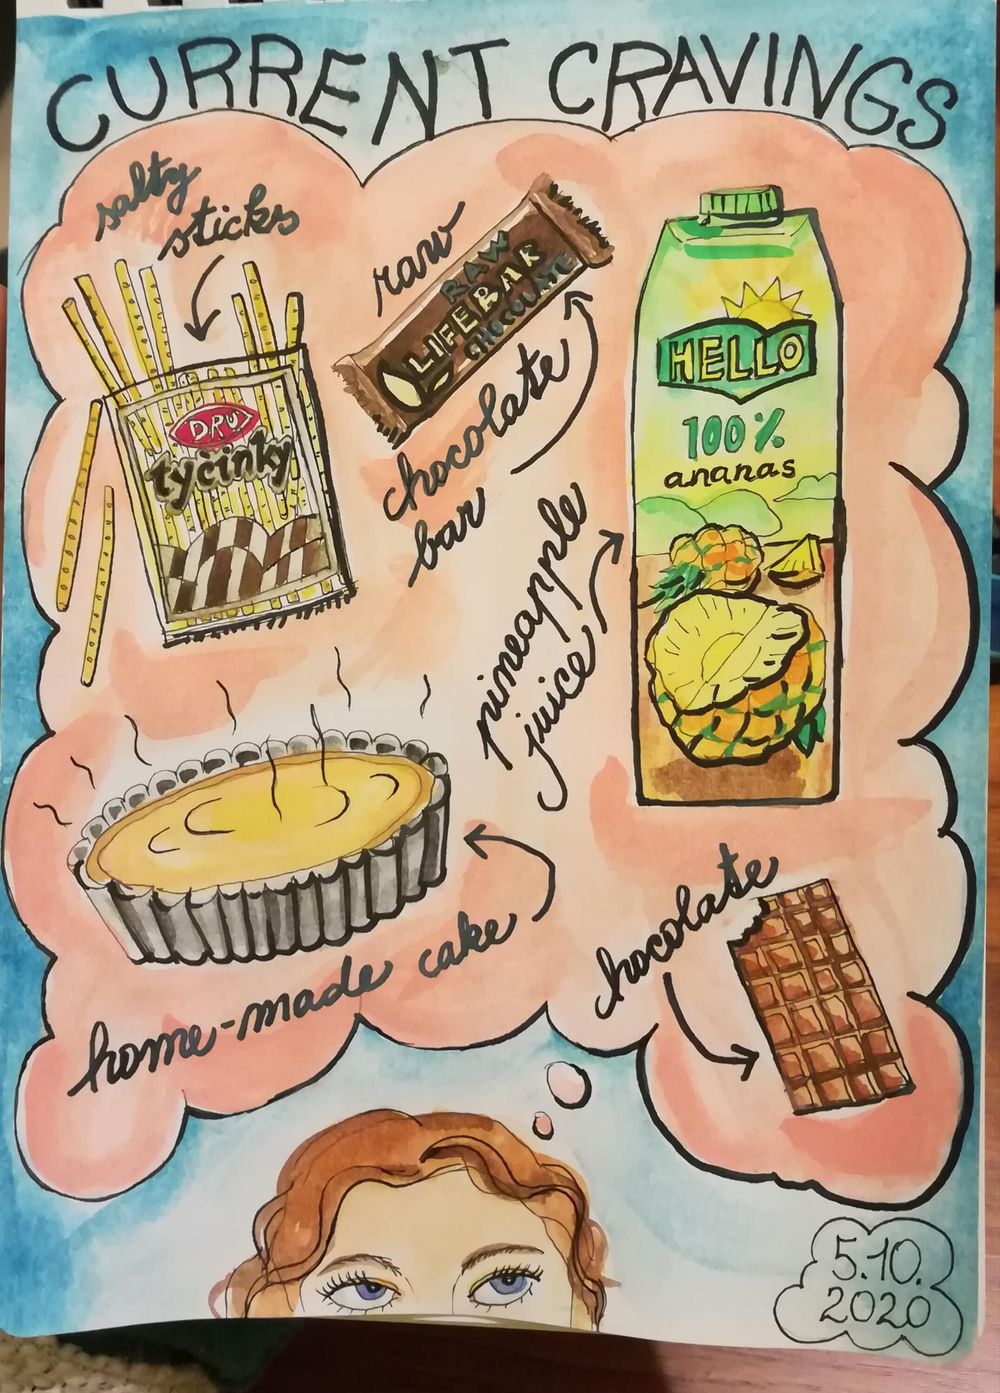 CURRENT CRAVINGS
salty
sticks
DRU
tyčinky
raw
RAW
LIFEBAR
CHOCOLATE
chocolate
bar
HELLO
100%
ananas
pineapple
juice
home-made cake
chocolate
5.10.
2020